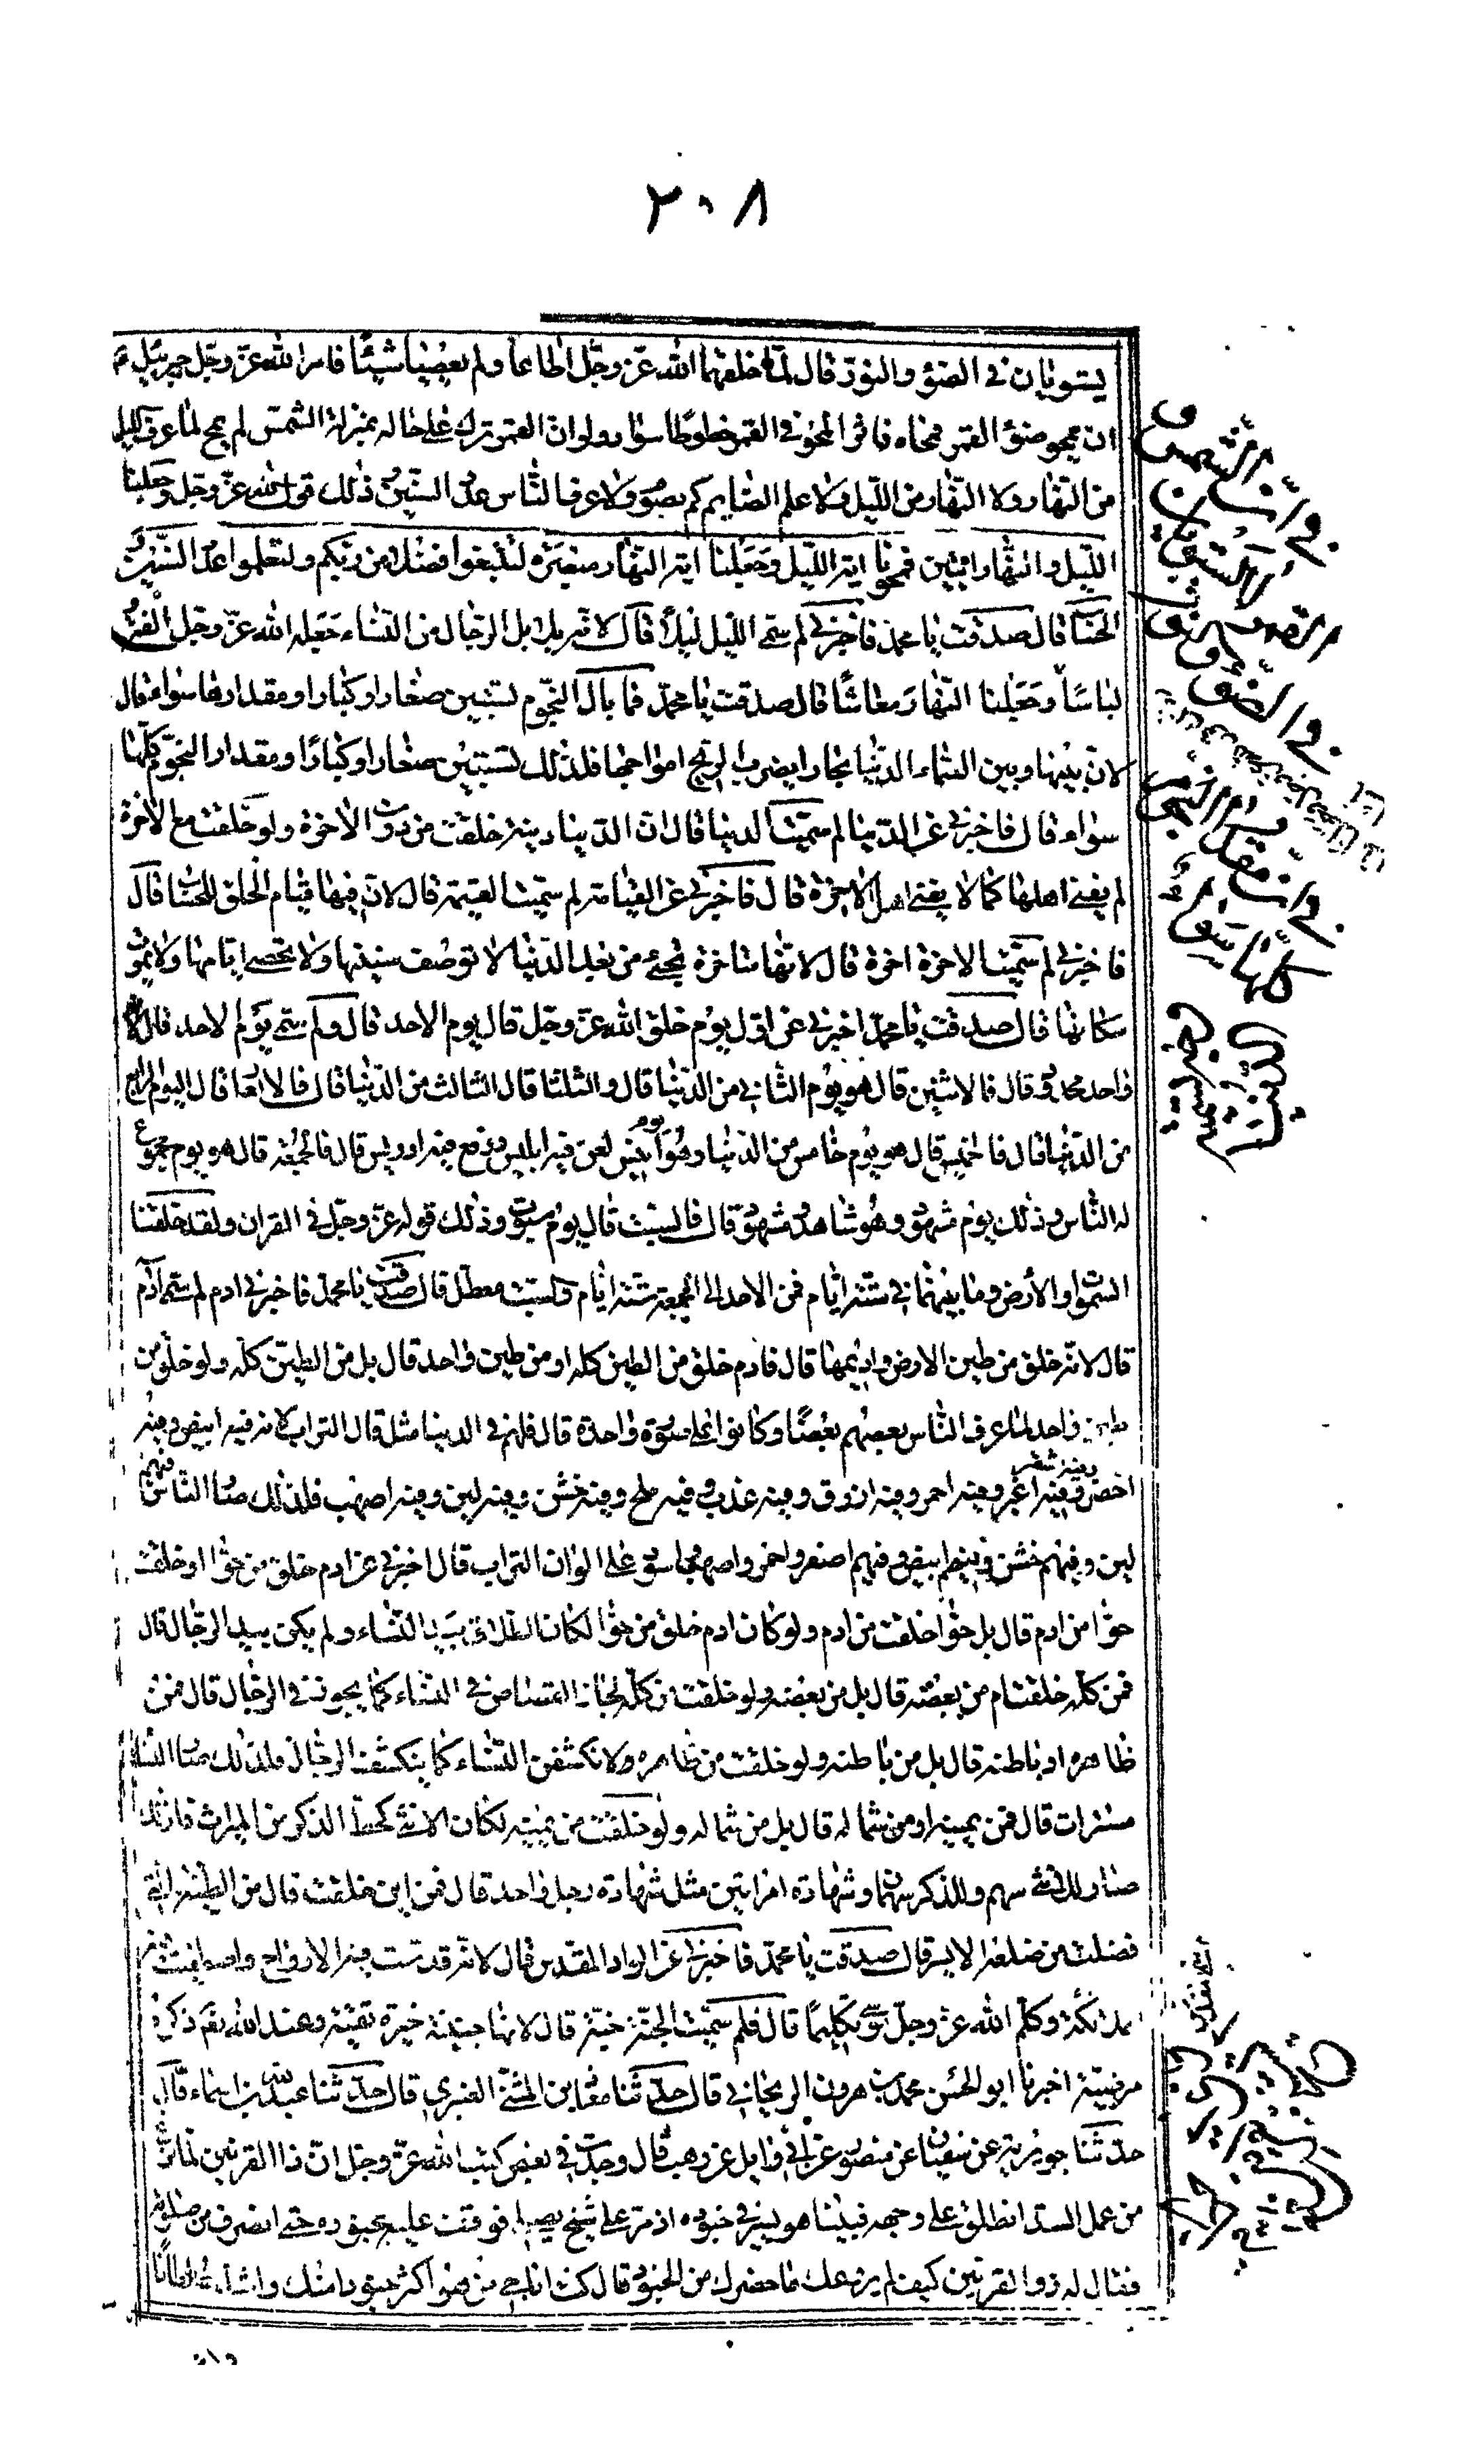 ٢٠٨
يستويان في الضوء والنور قال لما خلقهما الله عز وجل اطاعا ولم يعصيا شيئا فامر الله عز وجل جبرئيل ع
ان يمحو ضوء القمر فمحاه فاثر المحو في القمر خطوطا سوداء ولو ان القمر ترك على حاله بمنزلة الشمس لم يمح لما عرف الليل
من النهار ولا النهار من الليل ولا علم الصايم كم يصوم ولا عرف الناس عدد السنين وذلك قول الله عز وجل وجعلنا
الليل والنهار ايتين فمحونا اية الليل وجعلنا اية النهار مبصرة لتبتغوا فضلا من ربكم ولتعلموا عدد السنين و
الحساب قال صدقت يا محمد فاخبرني لم سمي الليل ليلا قال لانه يلايل الرجال من النساء جعله الله عز وجل الفة و
لباسا وجعلنا النهار معاشا قال صدقت يا محمد فما بال النجوم تستبين صغارا وكبارا ومقدارها سواء قال
لان بينها وبين السماء الدنيا بحارا يضرب الريح امواجها فلذلك تستبين صغارا وكبارا ومقدار النجوم كلها
سواء قال فاخبرني عن الدنيا لم سميت الدنيا قال ان الدنيا دنية خلقت من دون الاخرة ولو خلقت مع الاخرة
لم يفنى اهلها كما لا يفنى اهل الاخرة قال فاخبرني عن القيامة لم سميت القيمة قال لان فيها قيام الخلق للحساب قال
فاخبرني لم سميت الاخرة اخرة قال لانها متاخرة تجئ من بعد الدنيا لا توصف سنينها ولا تحصى ايامها ولا يموت
سكانها قال صدقت يا محمد اخبرني عن اول يوم خلق الله عز وجل قال يوم الاحد قال ولم سمي يوم الاحد قال لانه
واحد محدود قال فالاثنين قال هو يوم الثاني من الدنيا قال والثلثا قال الثالث من الدنيا قال فالاربعا قال اليوم الرابع
من الدنيا قال فالخميس قال هو يوم خامس من الدنيا وهو يوم انيس لعن فيه ابليس ورفع فيه ادريس قال فالجمعة قال هو يوم مجموع
له الناس وذلك يوم مشهود وهو شاهد ومشهود قال فالسبت قال يوم مسبوت وذلك قوله عز وجل في القران ولقد خلقنا
السموات والأرض وما بينهما في ستة ايام فمن الاحد الى الجمعة ستة ايام والسبت معطل قال صدقت يا محمد فاخبرني ادم لم سمي آدم
قال لانه خلق من طين الارض واديمها قال فادم خلق من الطين كله او من طين واحد قال بل من الطين كله ولو خلق من
طين واحد لما عرف الناس بعضهم بعضا وكانوا على صورة واحدة قال فلهم في الدنيا مثل قال التراب لانه فيه ابيض وفيه
اخضر وفيه اشقر وفيه اغبر وفيه احمر وفيه ازرق وفيه عذب وفيه ملح وفيه خشن وفيه لين وفيه اصهب فلذلك صار الناس فيهم
لين وفيهم خشن وفيهم ابيض وفيهم اصفر واحمر واصهب واسود على الوان التراب قال اخبرني عن ادم خلق من حوا او خلقت
حوا من ادم قال بل حوا خلقت من ادم ولو كان ادم خلق من حوا لكان الطلاق بيد النساء ولم يكن بيد الرجال قال
فمن كله خلقت ام من بعضه قال بل من بعضه ولو خلقت من كله لجاز القصاص في النساء كما يجوز في الرجال قال فمن
ظاهره او باطنه قال بل من باطنه ولو خلقت من ظاهره ولانكشفن النساء كما ينكشف الرجال فلذلك صار النساء
مستترات قال فمن يمينه او من شماله قال بل من شماله ولو خلقت من يمينه لكان للانثى كحظ الذكر من الميراث فلذلك
صار للانثى سهم وللذكر سهمان وشهادة امراتين مثل شهادة رجل واحد قال فمن اين خلقت قال من الطينة التي
فضلت من ضلعه الايسر قال صدقت يا محمد فاخبرني عن الواد المقدس قال لانه قدست فيه الارواح واصطفيت فيه
الملائكة وكلم الله عز وجل موسى تكليما قال فلم سميت الجنة جنة قال لانها جنينة خيرة نقية وعند الله تعم ذكره
مرضية اخبرنا ابو الحسن محمد بن هرون الريحاني قال حدثنا معاذ بن المثنى العنبري قال حدثنا عبدالله بن اسماء قال
حدثنا جويرية عن سفيان عن منصور عن ابي وايل عن وهب قال وجدت في بعض كتب الله عز وجل ان ذا القرنين لما فرغ
من عمل السد انطلق على وجهه فبينا هو يسير في جنوده اذ مر على شيخ يصلي فوقف عليه بجنوده حتى انصرف من صلوته
فقال له ذو القرنين كيف لم يرعك ما حضرك من الجنود قال كنت اناجي من هو اكثر جنودا منك واشد سلطانا